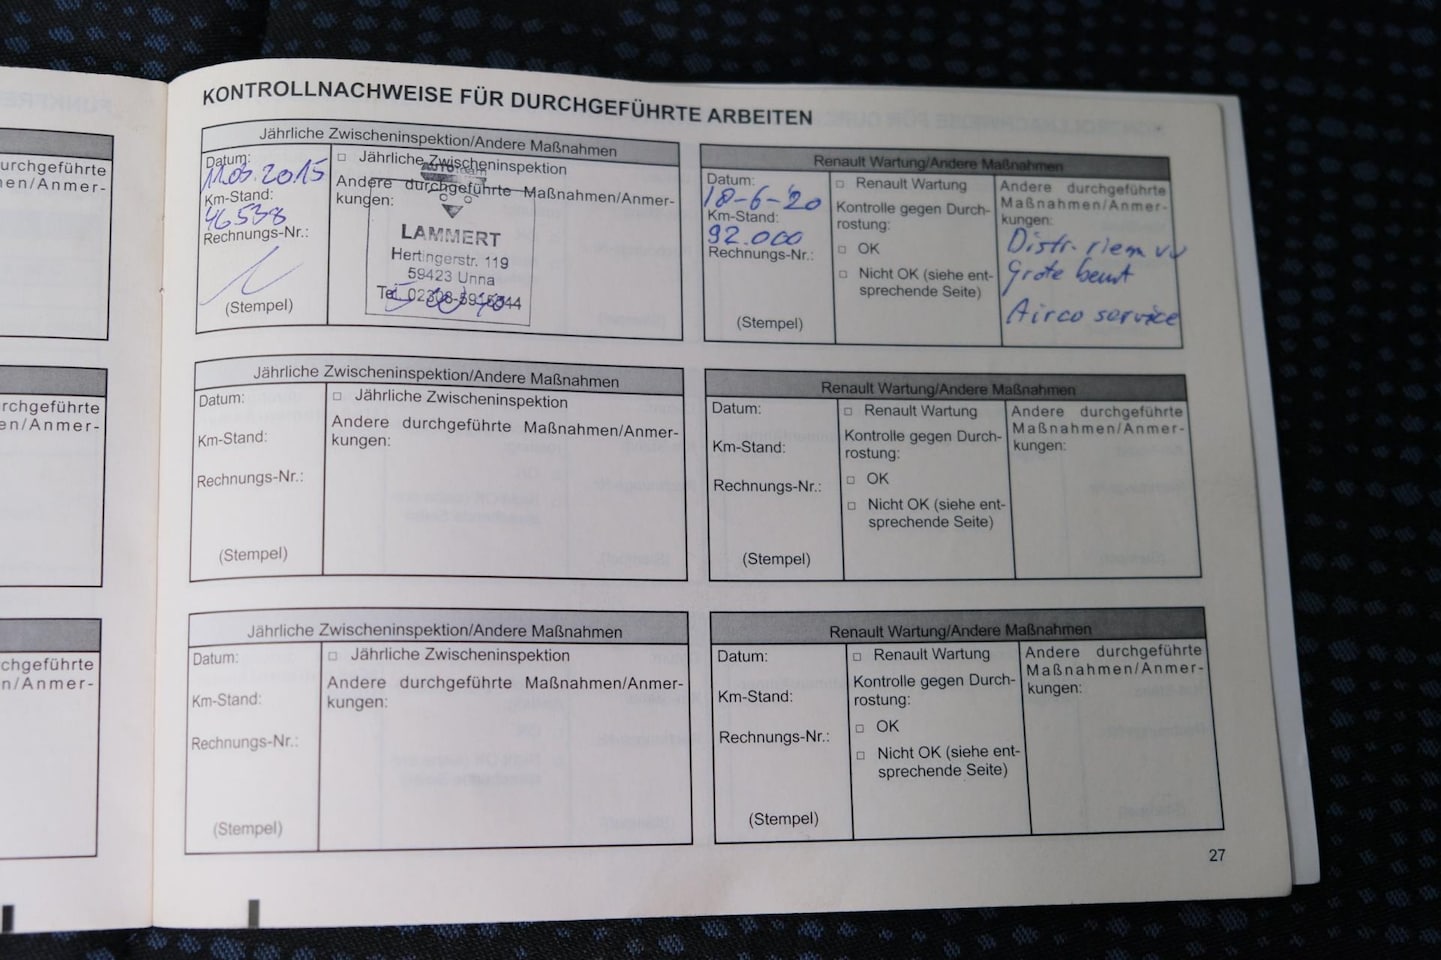 KONTROLLNACHWEISE FÜR DURCHGEFÜHRTE ARBEITEN
Jährliche Zwischeninspektion/Andere Maßnahmen
Datum:
11.03.2015
Km-Stand:
46538
Rechnungs-Nr.:
(Stempel)
□ Jährliche Zwischeninspektion
Andere durchgeführte Maßnahmen/Anmer-
kungen:
AUTO
LAMMERT
Hertingerstr. 119
59423 Unna
Tel.
Renault Wartung/Andere Maßnahmen
Datum:
18-6-'20
Km-Stand:
92.000
Rechnungs-Nr.:
(Stempel)
□ Renault Wartung
Kontrolle gegen Durch-
rostung:
□ OK
□ Nicht OK (siehe ent-
sprechende Seite)
Andere durchgeführte
Maßnahmen/Anmer-
kungen:
Distr. riem vv
Grote beurt
Airco service
urchgeführte
en/Anmer-
Jährliche Zwischeninspektion/Andere Maßnahmen
Datum:
Km-Stand:
Rechnungs-Nr.:
(Stempel)
□ Jährliche Zwischeninspektion
Andere durchgeführte Maßnahmen/Anmer-
kungen:
Renault Wartung/Andere Maßnahmen
Datum:
Km-Stand:
Rechnungs-Nr.:
(Stempel)
□ Renault Wartung
Kontrolle gegen Durch-
rostung:
□ OK
□ Nicht OK (siehe ent-
sprechende Seite)
Andere durchgeführte
Maßnahmen/Anmer-
kungen:
rchgeführte
en/Anmer-
Jährliche Zwischeninspektion/Andere Maßnahmen
Datum:
Km-Stand:
Rechnungs-Nr.:
(Stempel)
□ Jährliche Zwischeninspektion
Andere durchgeführte Maßnahmen/Anmer-
kungen:
Renault Wartung/Andere Maßnahmen
Datum:
Km-Stand:
Rechnungs-Nr.:
(Stempel)
□ Renault Wartung
Kontrolle gegen Durch-
rostung:
□ OK
□ Nicht OK (siehe ent-
sprechende Seite)
Andere durchgeführte
Maßnahmen/Anmer-
kungen:
chgeführte
n/Anmer-
27